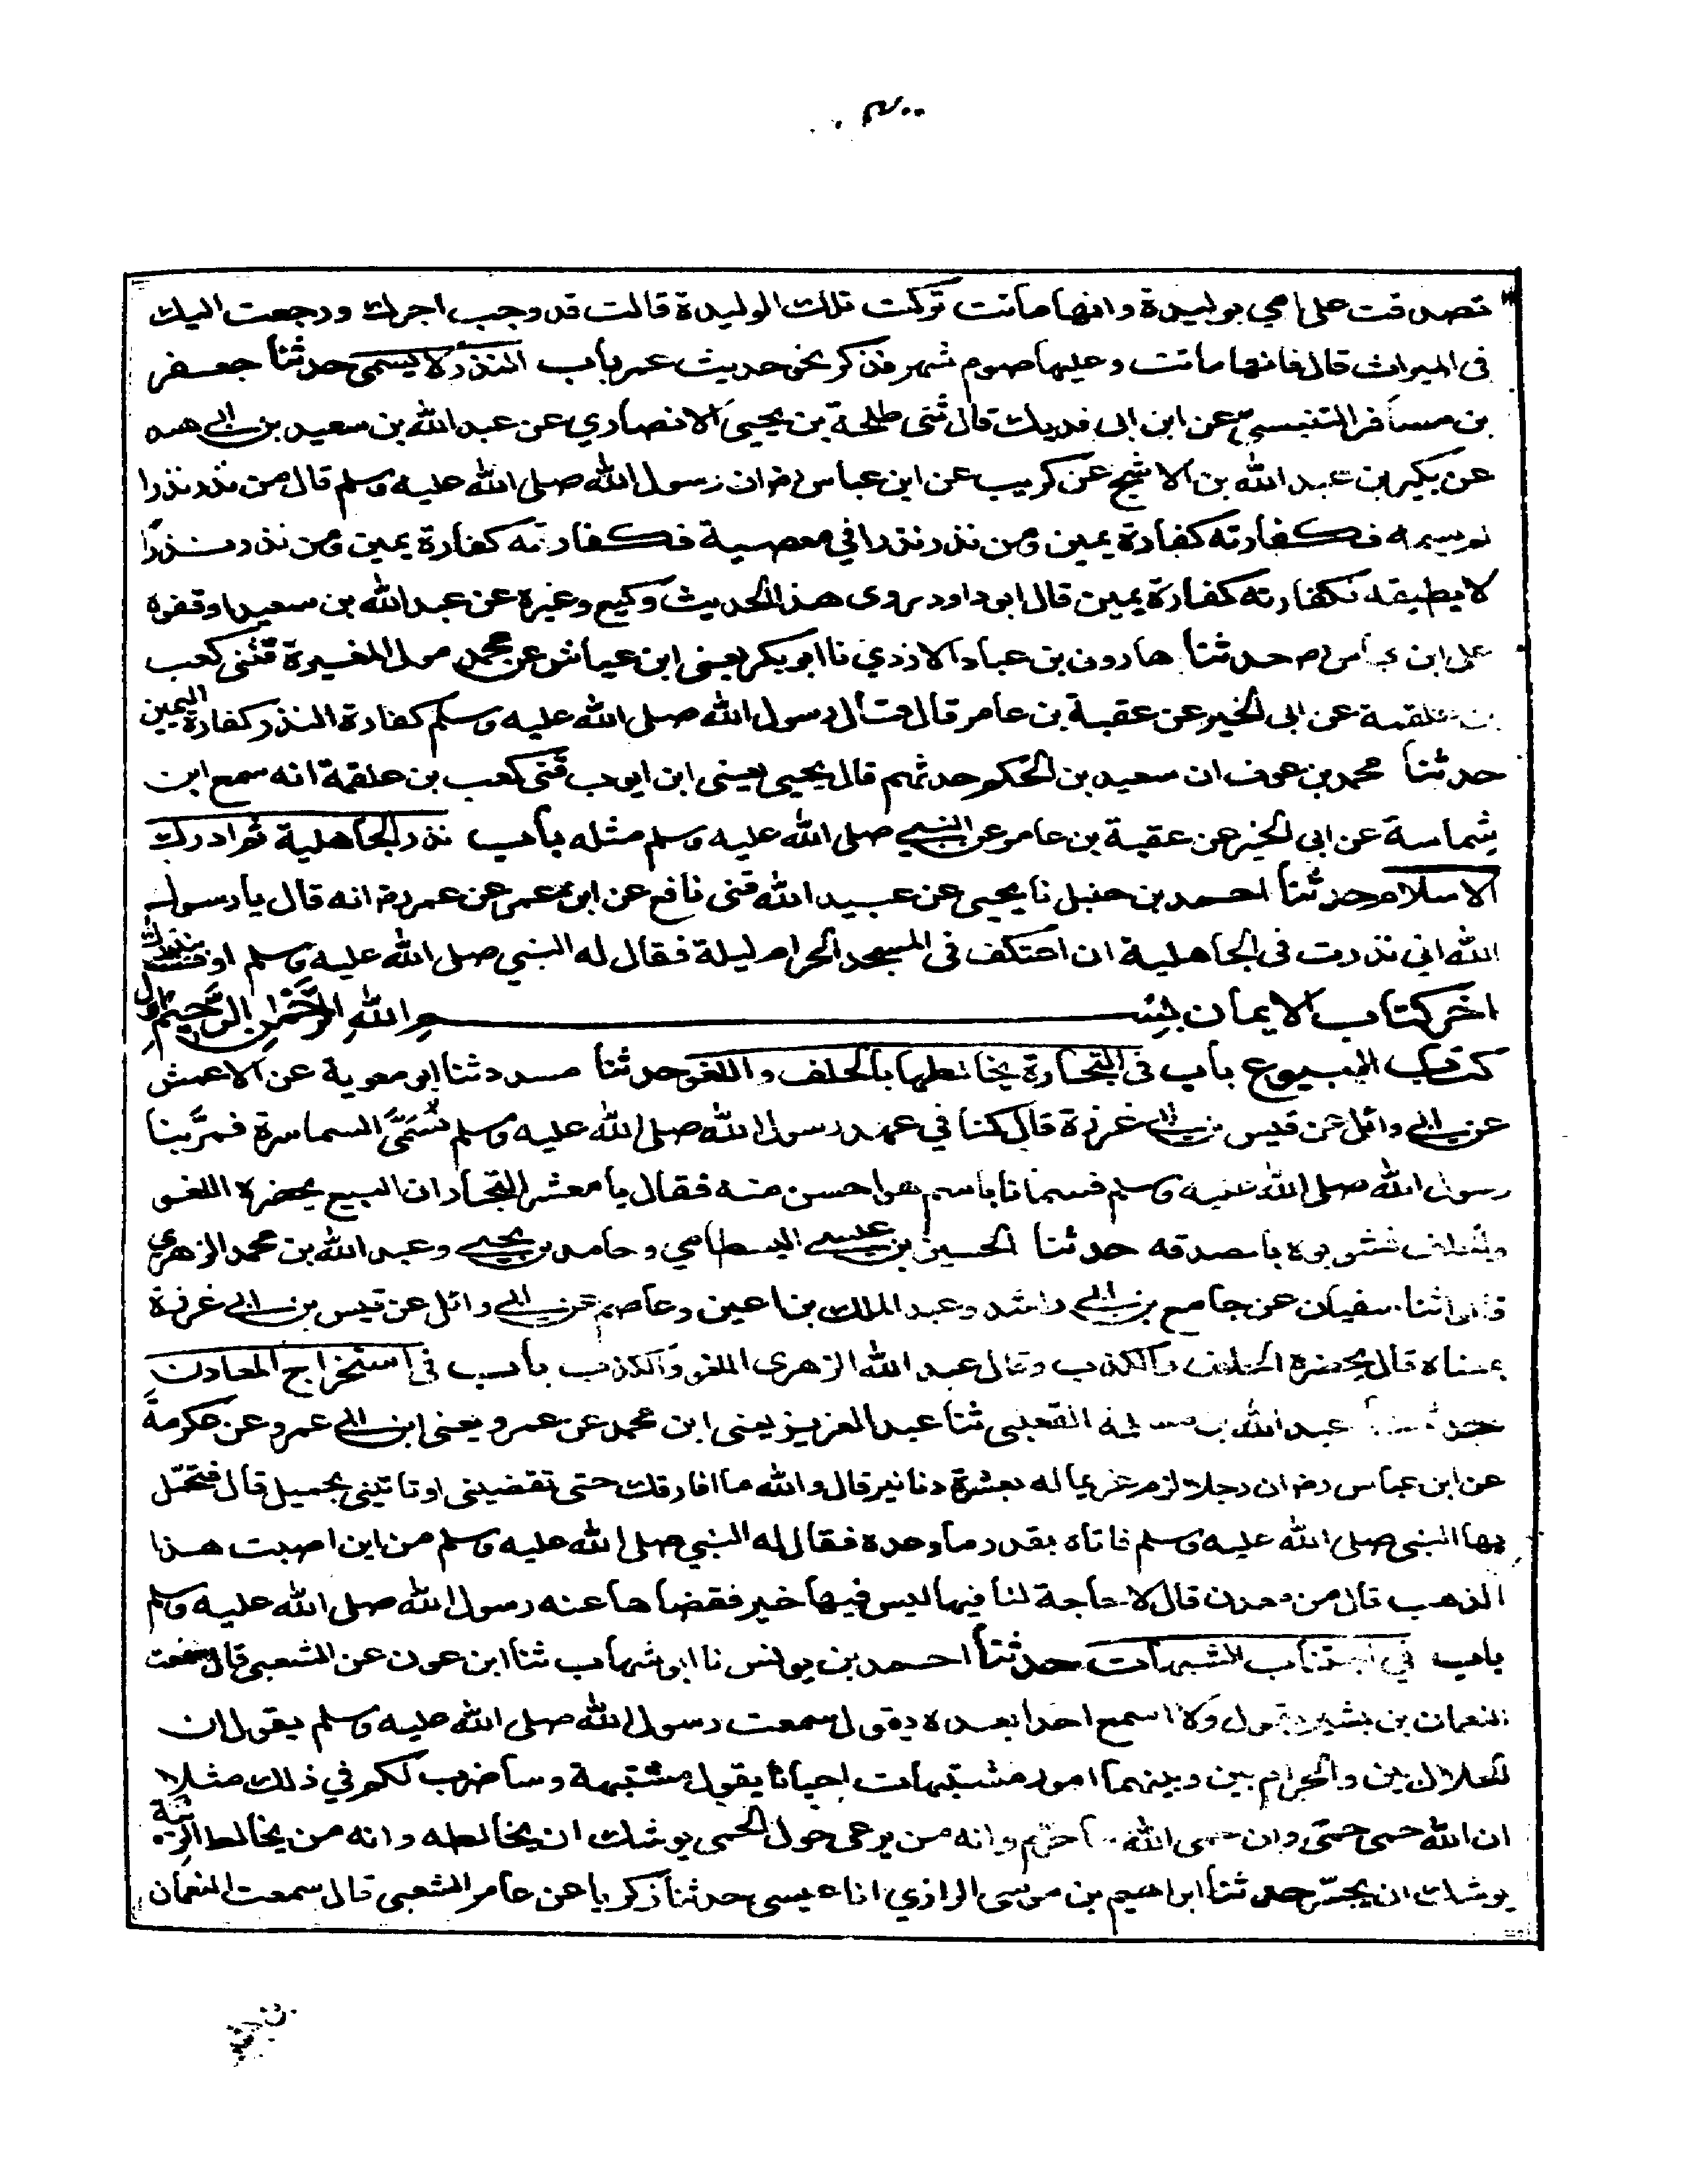 تصدقت على امي بوليدة وانها ماتت تركت تلك الوليدة قالت قد وجب اجرك ورجعت اليك
في الميراث قال فانها ماتت وعليها صوم شهر فذكر نحو حديث عمر باب النذر لا يسمى حدثنا جعفر
بن مسافر التنيسي عن ابن ابي فديك قال ثنى طلحة بن يحيى الانصاري عن عبد الله بن سعيد بن ابي هند
عن بكير بن عبد الله بن الاشج عن كريب عن ابن عباس رض ان رسول الله صلى الله عليه وسلم قال من نذر نذرا
لم يسمه فكفارته كفارة يمين ومن نذر نذرا في معصية فكفارته كفارة يمين ومن نذر نذرًا
لا يطيقه فكفارته كفارة يمين قال ابو داود روى هذا الحديث وكيع وغيره عن عبد الله بن سعيد اوقفوه
على ابن عباس رض حدثنا هارون بن عباد الازدي نا ابو بكر يعنى ابن عياش عن محمد مولى المغيرة قثنى كعب
بن علقمة عن ابى الخير عن عقبة بن عامر قال قال رسول الله صلى الله عليه وسلم كفارة النذر كفارة اليمين
حدثنا محمد بن عوف ان سعيد بن الحكم حدثهم قال يحيى يعنى ابن ايوب قثنى كعب بن علقمة انه سمع ابن
شماسة عن ابى الخير عن عقبة بن عامر عن النبي صلى الله عليه وسلم مثله باب نذر الجاهلية ثم ادرك
الاسلام حدثنا احمد بن حنبل نا يحيى عن عبيد الله قثنى نافع عن ابن عمر عن عمر رض انه قال يا رسول
الله اني نذرت فى الجاهلية ان اعتكف فى المسجد الحرام ليلة فقال له النبي صلى الله عليه وسلم اوف بنذرك
اخر كتاب الايمان بِسْمِ اللهِ الرَّحْمٰنِ الرَّحِيمِ اول
كتاب البيوع باب فى التجارة يخالطها بالحلف واللغو حدثنا مسدد ثنا ابو معوية عن الاعمش
عن ابي وائل عن قيس بن ابي غرزة قال كنا في عهد رسول الله صلى الله عليه وسلم نُسَمَّى السماسرة فمرَّ بنا
رسول الله صلى الله عليه وسلم فسمانا باسم هو احسن منه فقال يا معشر التجار ان البيع يحضره اللغو
والحلف فشوبوه بالصدقه حدثنا الحسين بن عيسى البسطامي وحامد بن يحيى وعبد الله بن محمد الزهري
قالوا ثنا سفيان عن جامع بن ابي راشد وعبد الملك بن اعين وعاصم عن ابي وائل عن قيس بن ابي غرزة
بمعناه قال يحضره الحلف والكذب وقال عبد الله الزهرى اللغو والكذب باب فى استخراج المعادن
حدثنا عبد الله بن مسلمة القعنبى ثنا عبد العزيز يعنى ابن محمد عن عمرو يعنى ابن ابي عمرو عن عكرمة
عن ابن عباس رض ان رجلا لزم غريما له بعشرة دنانير قال والله ما افارقك حتى تقضينى او تاتينى بحميل قال فتحمّل
بها النبى صلى الله عليه وسلم فاتاه بقدر ما وعده فقال له النبي صلى الله عليه وسلم من اين اصبت هذا
الذهب قال من معدن قال لا حاجة لنا فيها ليس فيها خير فقضاها عنه رسول الله صلى الله عليه وسلم
باب في اجتناب الشبهات حدثنا احمد بن يونس نا ابو شهاب ثنا ابن عون عن الشعبى قال سمعت
النعمان بن بشير يقول ولا اسمع احدا بعده يقول سمعت رسول الله صلى الله عليه وسلم يقول ان
الحلال بين والحرام بين وبينهما امور مشتبهات احيانا يقول مشتبهة وساضرب لكم في ذلك مثلا
ان الله حمى حمًى وان حمى الله ما حرّم وانه من يرعى حول الحمى يوشك ان يخالطه وانه من يخالط الريبة
يوشك ان يجسّر حدثنا ابراهيم بن موسى الرازي انا عيسى حدثنا زكريا عن عامر الشعبى قال سمعت النعمان